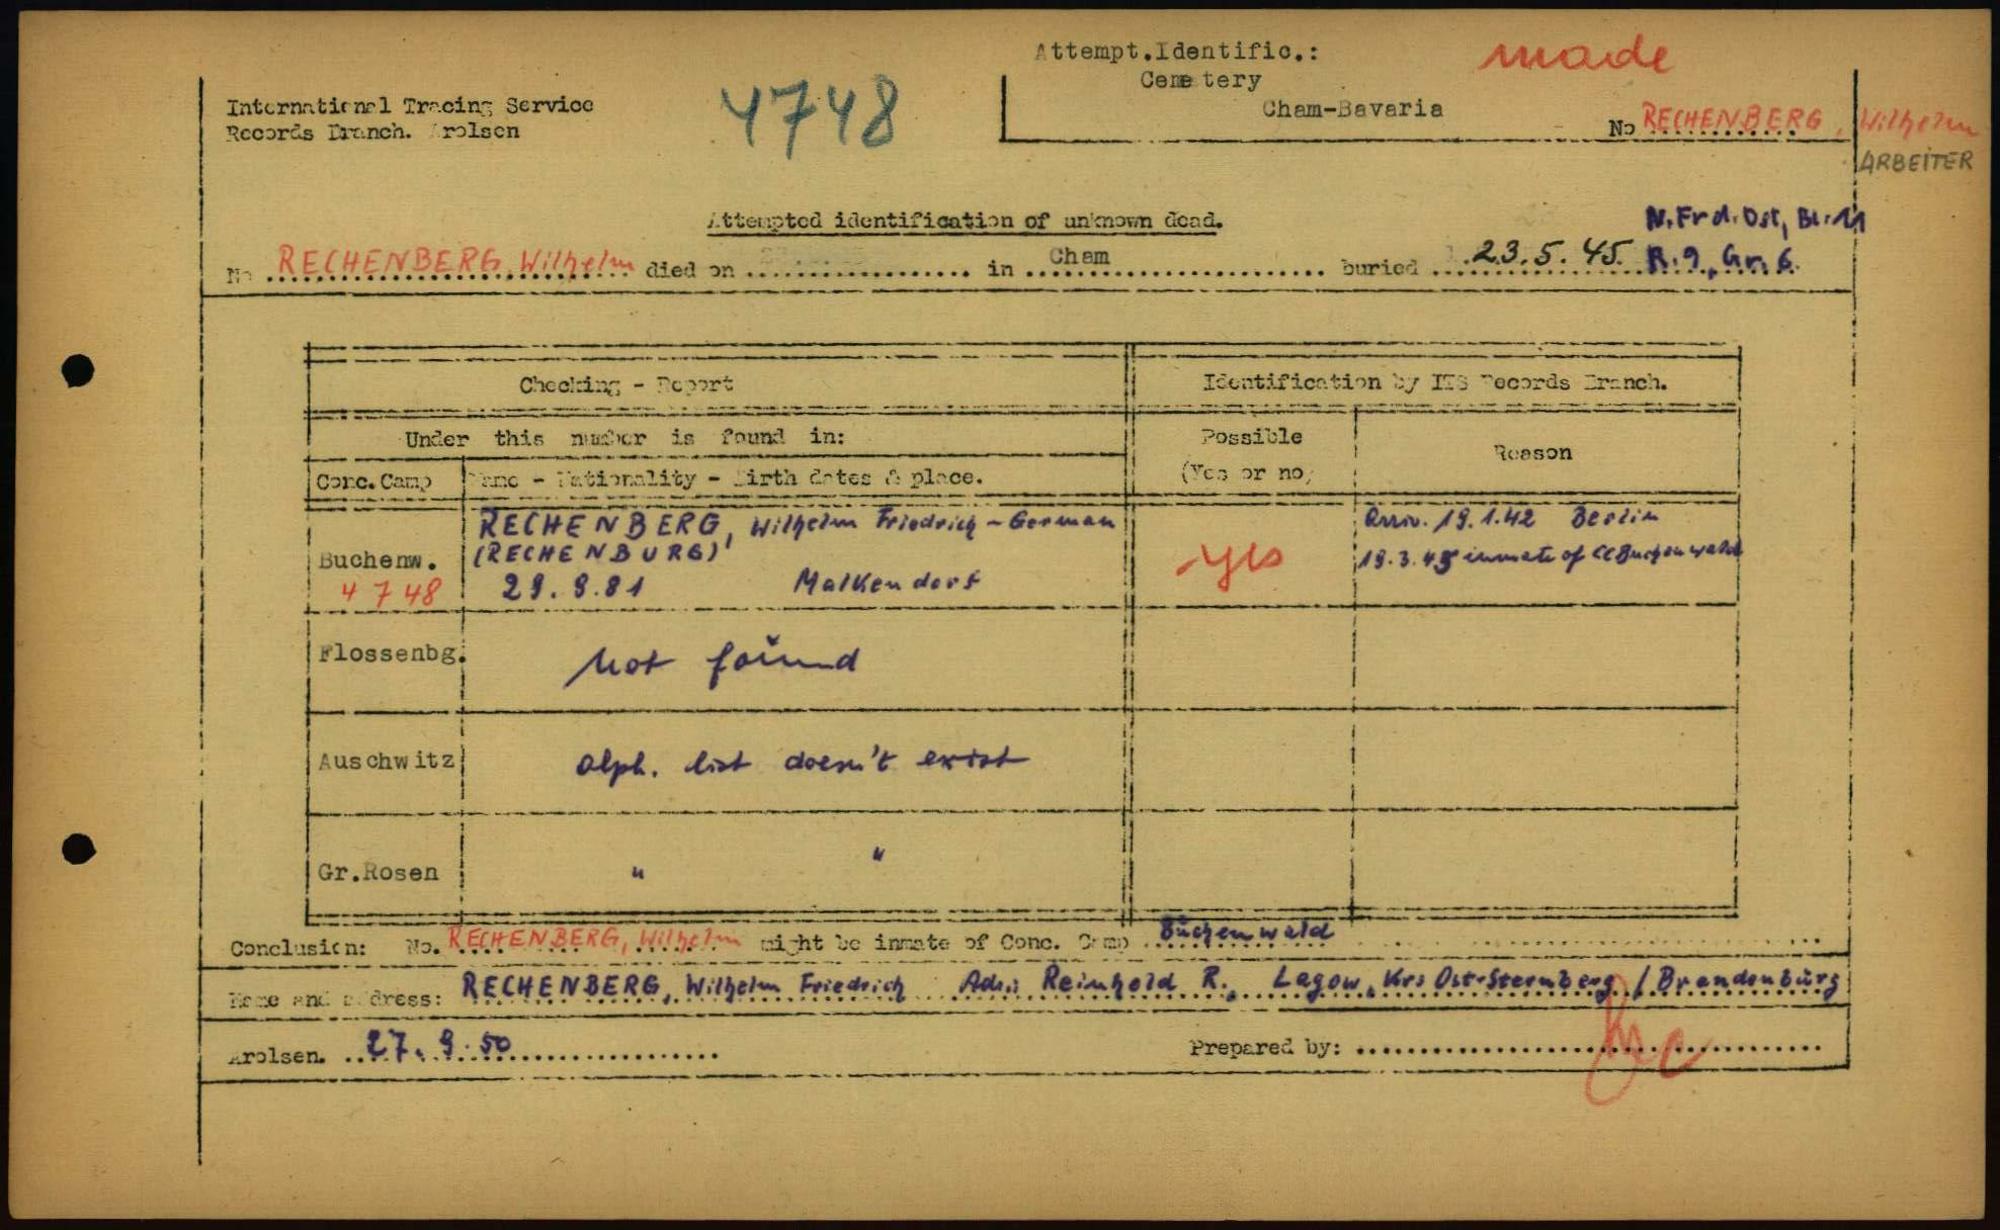 Attempt.Identific.:
made
Cemetery
International Tracing Service
4748
Cham-Bavaria
No RECHENBERG, Wilhelm
Records Branch. Arolsen
ARBEITER
Attempted identification of unknown dead.
N.Frd.Ost, Bl.11
No RECHENBERG, Wilhelm died on .................. in Cham buried 23.5.45. R.9, Gr. 6.
Checking - Report
Identification by ITS Records Branch.
Under this number is found in:
Possible
(Yes or no)
Reason
Conc.Camp
Name - Nationality - Birth dates & place.
Buchenw.
4748
RECHENBERG, Wilhelm Friedrich - German
(RECHENBURG)
29.9.81 Malkendorf
yes
Arriv. 19.1.42 Berlin
19.3.45 inmate of CC Buchenwald
Flossenbg.
Not found
Auschwitz
alph. list doesn't exist
Gr.Rosen
" "
Conclusion: No. RECHENBERG, Wilhelm might be inmate of Conc. Camp Buchenwald
Name and address: RECHENBERG, Wilhelm Friedrich Adr.: Reinhold R., Lagow, Krs Ost-Sternberg / Brandenburg
Arolsen. 27.9.50
Prepared by: